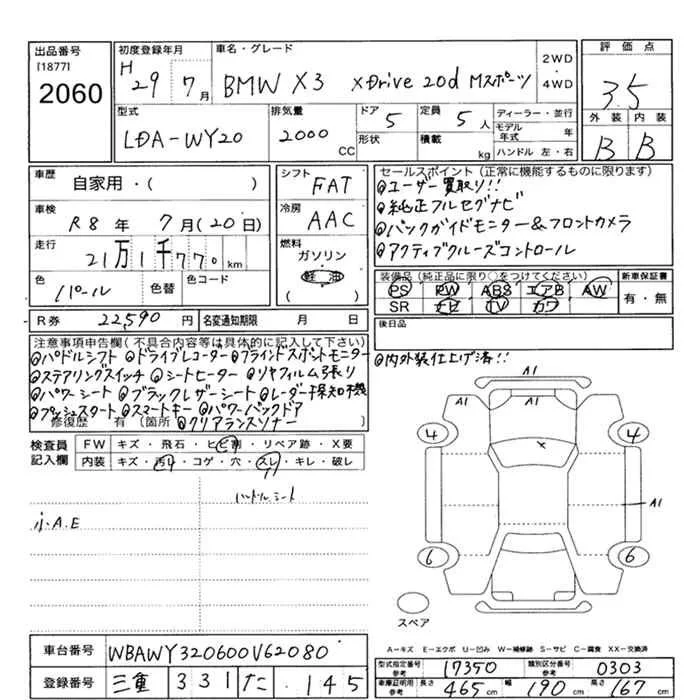 出品番号
[1877]
2060
初度登録年月
H 29年 7月
車名・グレード
BMW X3 xDrive 20d Mスポーツ
2WD
・
4WD
評価点
3.5
外装 内装
B B
型式
LDA-WY20
排気量
2000 CC
ドア
5
形状
定員
5人
積載
kg
ディーラー・並行
モデル年式 年
ハンドル 左・右
車歴
自家用・( )
車検
R8年 7月(20日)
走行
21万1千770km
色
パール
色替
色コード
シフト
FAT
冷房
AAC
燃料
ガソリン
軽油
( )
セールスポイント(正常に機能するものに限ります)
@ユーザー買取り!!
@純正フルセグナビ
@バックガイドモニター&フロントカメラ
@アクティブクルーズコントロール
装備品(純正品に限り○をつけてください)
PS PW ABS エアB AW
SR ナビ TV カワ
新車保証書
有・無
R券 22,590円
名変通知期限 月 日
後日品
注意事項申告欄(不具合内容等は具体的に記入して下さい)
@パドルシフト @ドライブレコーダー @ブラインドスポットモニター
@ステアリングスイッチ @シートヒーター @リヤフィルム張り
@パワーシート @ブラックレザーシート @レーダー探知機
@プッシュスタート @スマートキー @パワーバックドア
修復歴 有(箇所 @クリアランスソナー )
@内外装仕上げ済!!
検査員
記入欄
FW キズ・飛石・ヒビ割・リペア跡・X要
内装 キズ・汚れ・コゲ・穴・スレ・キレ・破レ
ハンドル シート
小A.E
A1
A1 A1
4 4
X
A1
6 6
スペア
A－キズ E－エクボ U－凹み W－補修跡 S－サビ C－腐食 XX－交換済
車台番号 WBAWY320600V62080
登録番号 三重 331 た ・145
型式指定番号 参考 17350
類別区分番号 参考 0303
車庫証明用 参考 長さ 465cm 幅 190cm 高さ 167cm